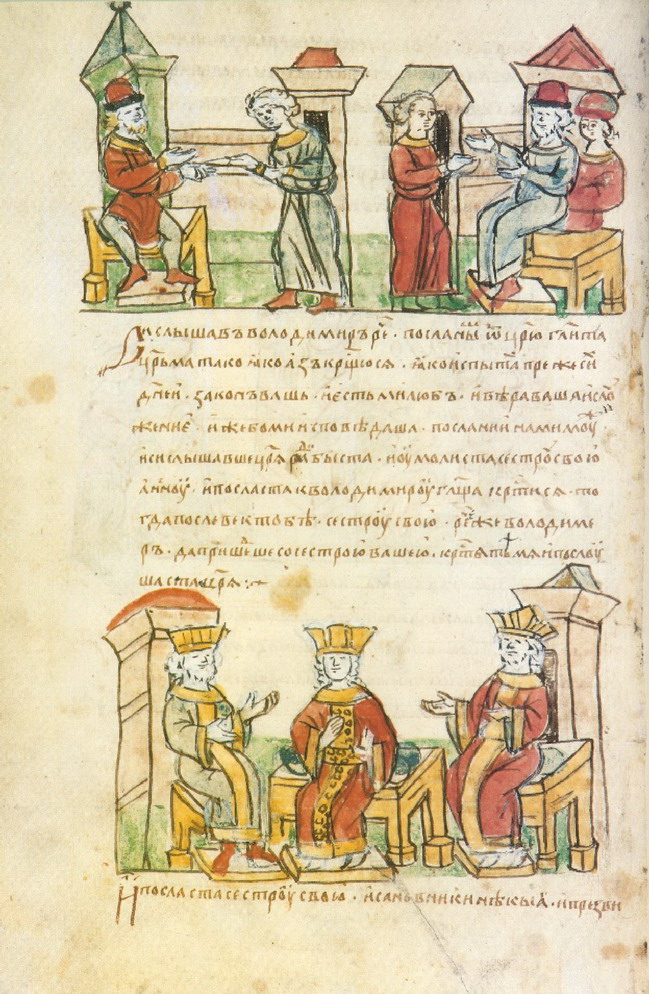 И слышавъ володимиръ реⷱ҇ . посланымъ ѿ цр҃ю гл҃ита
цр҃ьма тако ꙗко азъ кр҃щюсѧ . ꙗко испытаⷯ преже сиⷯ
дн҃ей . законъ вашь . и есть ми любъ . и вѣра ваша и слоу
жение . иже бо ми исповѣдаша . послании нами моуⷤ
и си слышавше цр҃ѧ раⷣ быста . и оумолиста сестроу свою
анноу . и посласта к володимироу гл҃ща кр҃тисѧ . то
гда послевѣ к тобѣ . сестроу свою . реⷱ҇же володиме
ръ . да пришеⷣше со сестрою вашею . кр҃тѧть мѧ и послоу
шаста цр҃ѧ :·
И посласта сестроу свою . и сановники нѣкыꙗ . и презви